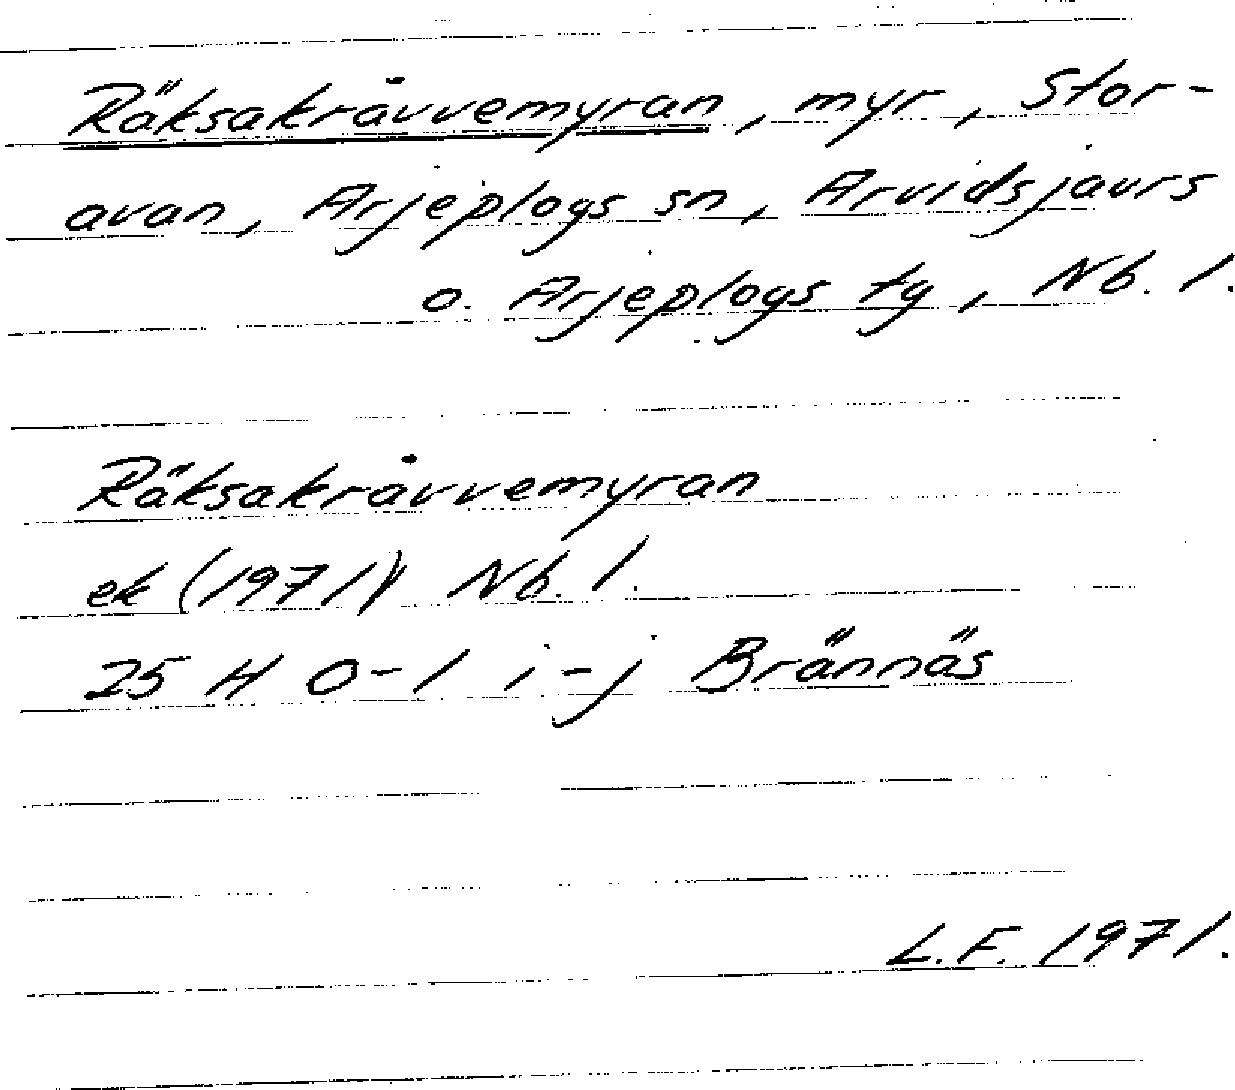 Räksakråvvemyran, myr, Stor-
avan, Arjeplogs sn, Arvidsjaurs
o. Arjeplogs tg, Nb. l.
Räksakråvvemyran
ek (1971) Nb. l.
25 H 0-1 i-j Brännäs
L.F. 1971.